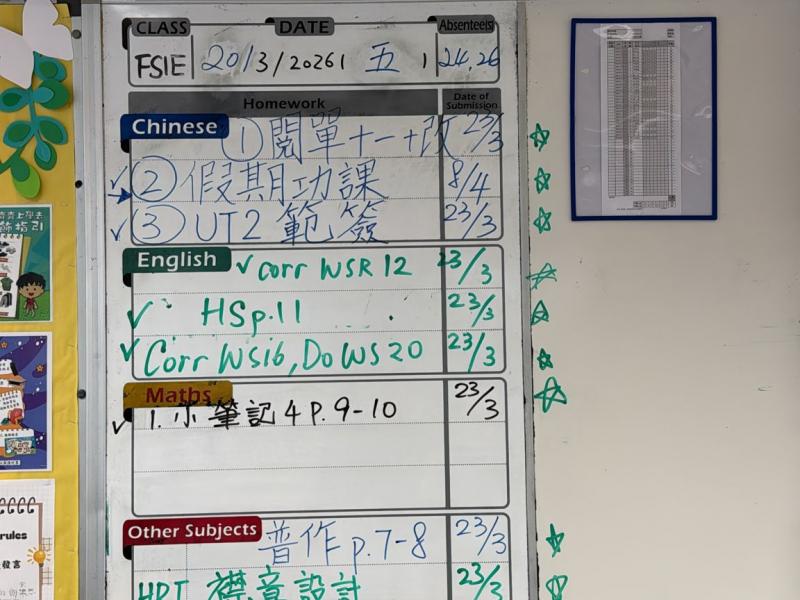 CLASS DATE Absentee(s)
FSIE 20/3/2026 ( 五 ) 24,26
Homework Date of Submission
Chinese ① 閱單十一+改 23/3
② 假期功課 8/4
③ UT2 範 簽 23/3
English ✓ corr WSR 12 23/3
✓ HSp.11 23/3
✓ Corr WS16, Do WS 20 23/3
Maths
✓ 1. 小筆記4 P.9-10 23/3
Other Subjects 普作 p.7-8 23/3
HPT 襟章設計 23/3
指引
rules
發言